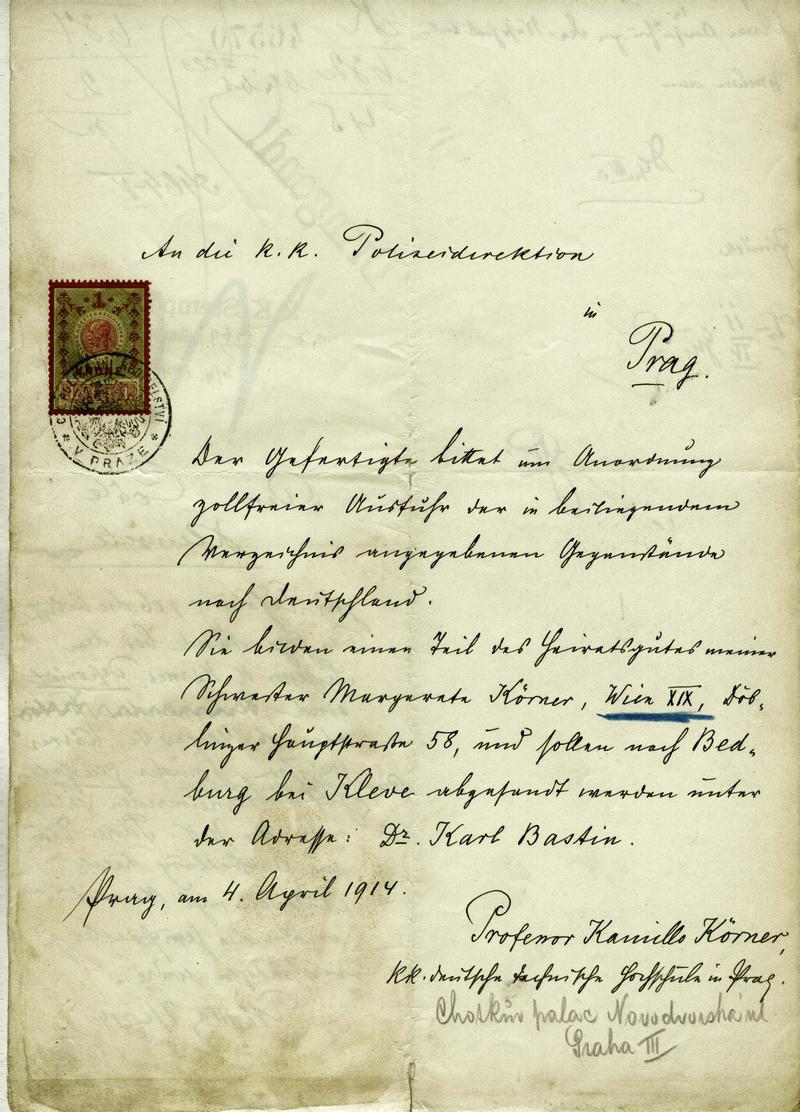 An die k. k. Polizeidirektion
in
Prag.
1
KRONE
V PRAZE
Der Gefertigte bittet um Anordnung
zollfreier Ausfuhr der in beiliegendem
Verzeichnis angegebenen Gegenstände
nach Deutschland.
Sie bilden einen Teil des Heiratsgutes meiner
Schwester Margarete Körner, Wien XIX, Döb-
linger Hauptstraße 58, und sollen nach Bed-
burg bei Kleve abgesandt werden unter
der Adresse: Dr. Karl Bastin.
Prag, am 4. April 1914.
Professor Kamillo Körner,
k.k. deutsche technische Hochschule in Prag.
Chotkův palac Novodvorská ul
Praha III